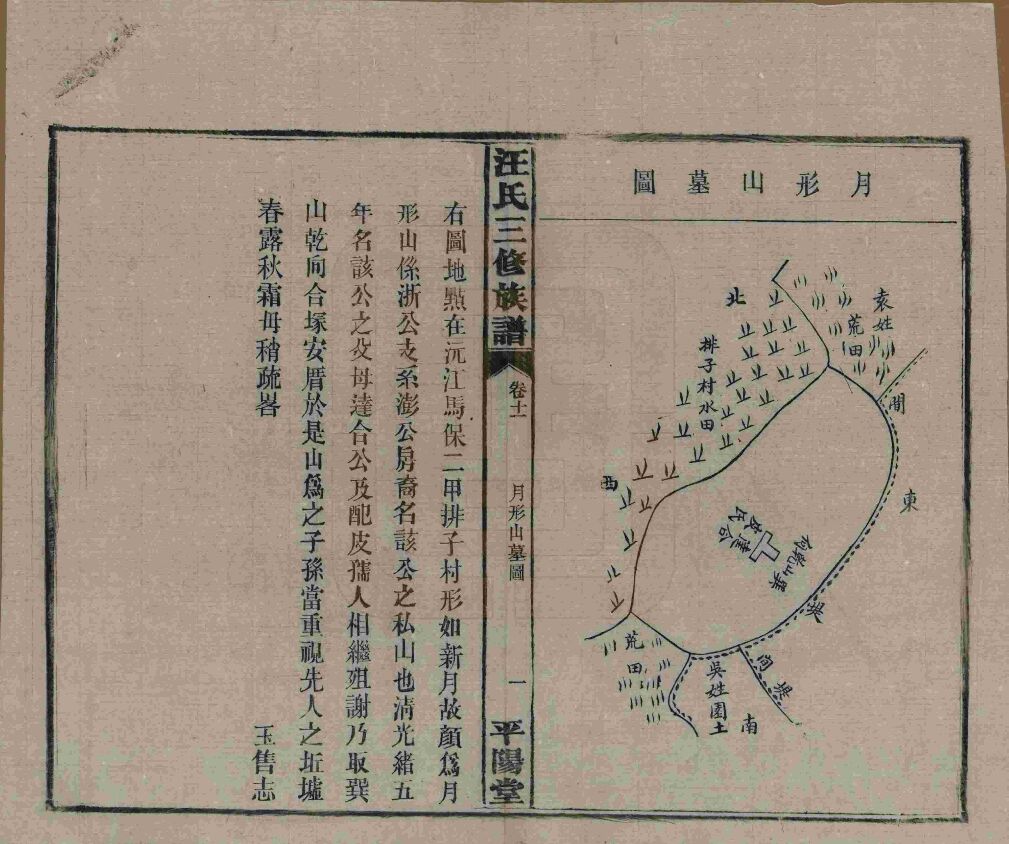 月形山墓圖
袁姓
荒田
北
排子村水田
西
東
間
堤
達合
皮氏
巽山乾向
荒田
吳姓園土
南
間堤
汪氏三修族譜
卷十一
月形山墓圖
一
平陽堂
右圖地㸃在沅江馬保二甲排子村形如新月故顏爲月
形山係浙公支系澎公房裔名該公之私山也清光緒五
年名該公之父母達合公及配皮孺人相繼殂謝乃取巽
山乾向合塚安厝於是山爲之子孫當重視先人之坵墟
春露秋霜毋稍疏畧
玉售志